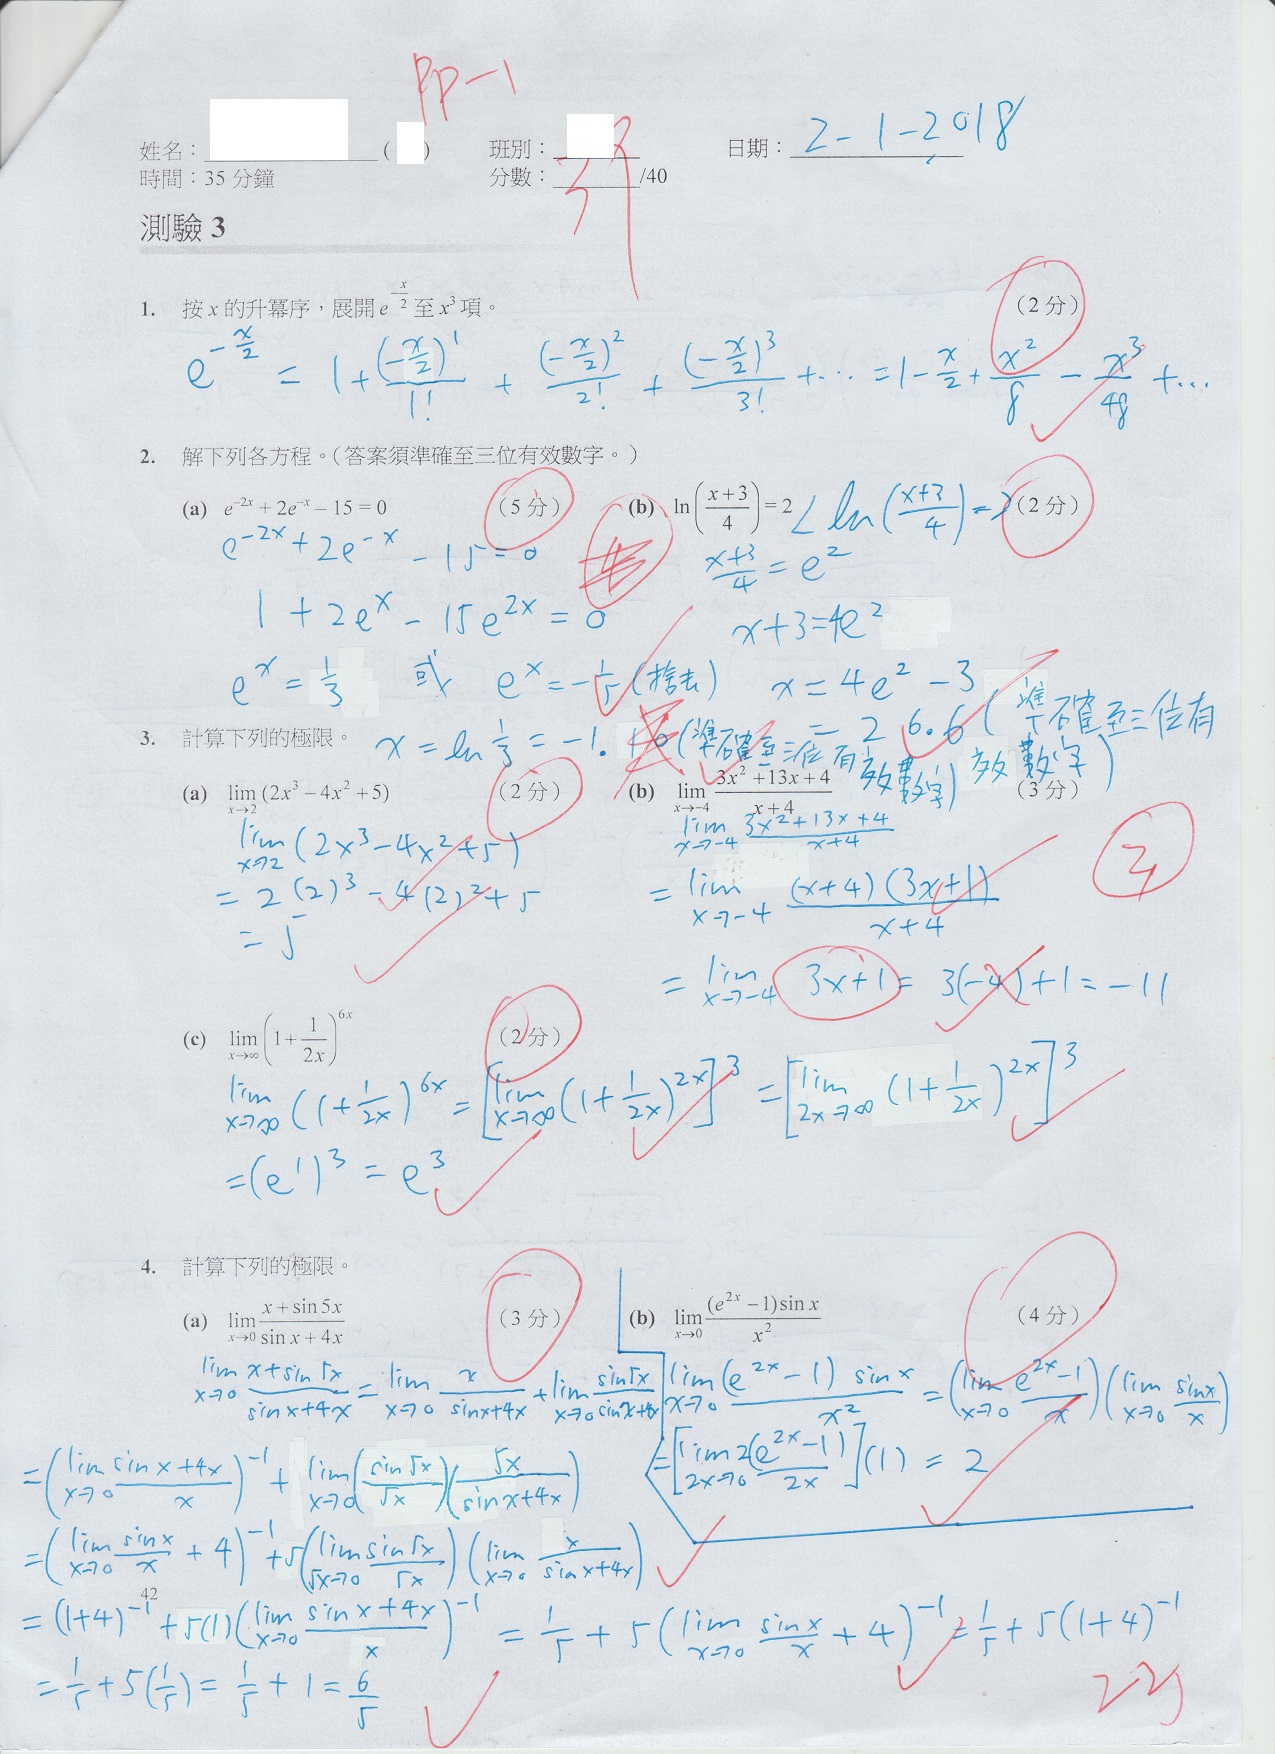 PP-1
姓名：( ) 班別： 日期：2-1-2018
時間：35 分鐘 分數： 39 /40
測驗 3
1. 按 x 的升冪序，展開 e^{-x/2} 至 x³ 項。 （2 分）
e^{-x/2} = 1 + (-x/2)^1/1! + (-x/2)^2/2! + (-x/2)^3/3! + ... = 1 - x/2 + x²/8 - x³/48 + ...
2. 解下列各方程。（答案須準確至三位有效數字。）
(a) e^{-2x} + 2e^{-x} - 15 = 0 （5 分） (b) ln((x+3)/4) = 2 （2 分）
e^{-2x} + 2e^{-x} - 15 = 0
1 + 2e^x - 15e^{2x} = 0
e^x = 1/3 或 e^x = -1/5 (捨去)
x = ln 1/3 = -1.10 (準確至三位有效數字)
ln((x+3)/4) = 2
(x+3)/4 = e²
x+3 = 4e²
x = 4e² - 3
= 26.6 (準確至三位有效數字)
4
3. 計算下列的極限。
(a) lim x→2 (2x³ - 4x² + 5) （2 分） (b) lim x→-4 (3x² + 13x + 4)/(x + 4) （3 分）
lim x→2 (2x³ - 4x² + 5)
= 2(2)³ - 4(2)² + 5
= 5
lim x→-4 (3x² + 13x + 4)/(x+4)
= lim x→-4 (x+4)(3x+1)/(x+4)
= lim x→-4 3x+1 = 3(-4)+1 = -11
(c) lim x→∞ (1 + 1/2x)^{6x} （2 分）
lim x→∞ (1 + 1/2x)^{6x} = [lim x→∞ (1 + 1/2x)^{2x}]^3 = [lim 2x→∞ (1 + 1/2x)^{2x}]^3
= (e^1)^3 = e^3
4. 計算下列的極限。
(a) lim x→0 (x + sin 5x)/(sin x + 4x) （3 分） (b) lim x→0 (e^{2x} - 1) sin x/x² （4 分）
lim x→0 (x + sin 5x)/(sin x + 4x) = lim x→0 x/(sin x + 4x) + lim x→0 sin 5x/(sin x + 4x)
= (lim x→0 (sin x + 4x)/x)^{-1} + lim x→0 (sin 5x/5x)(5x/(sin x + 4x))
= (lim x→0 sin x/x + 4)^{-1} + 5(lim 5x→0 sin 5x/5x)(lim x→0 x/(sin x + 4x))
= (1+4)^{-1} + 5(1)(lim x→0 (sin x + 4x)/x)^{-1} = 1/5 + 5(lim x→0 sin x/x + 4)^{-1} = 1/5 + 5(1+4)^{-1}
= 1/5 + 5(1/5) = 1/5 + 1 = 6/5
lim x→0 (e^{2x} - 1) sin x/x² = (lim x→0 (e^{2x} - 1)/x)(lim x→0 sin x/x)
= [lim 2x→0 2(e^{2x} - 1)/2x](1) = 2
42